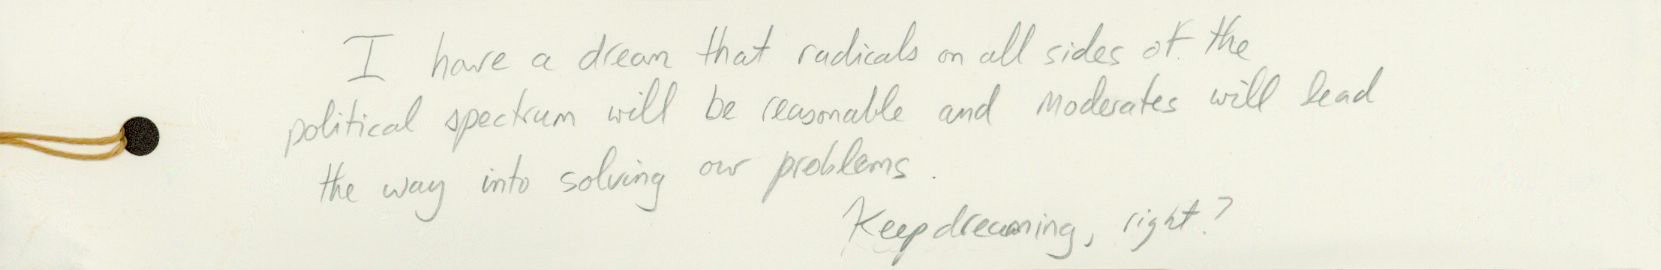 I have a dream that radicals on all sides of the
political spectrum will be reasonable and moderates will lead
the way into solving our problems.
Keep dreaming, right?